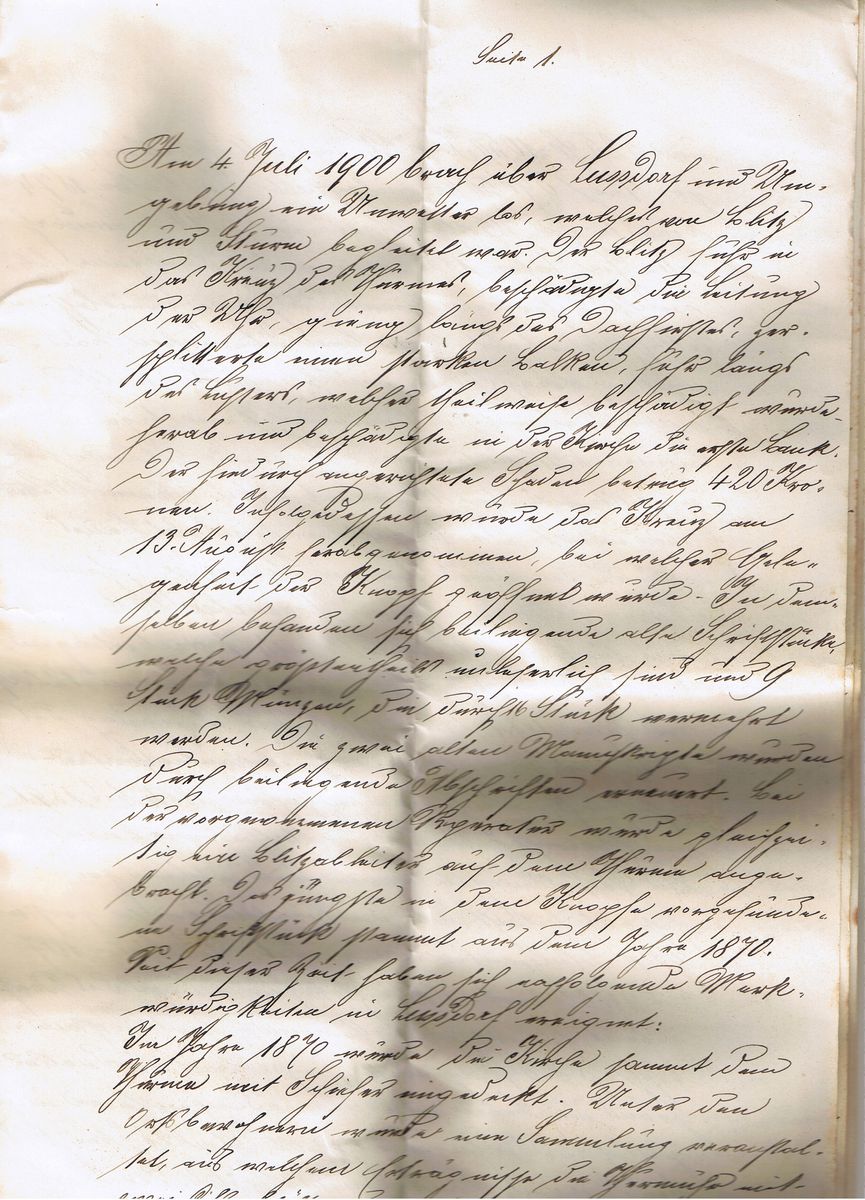 Seite 1.
Am 4. Juli 1900 brach über Lussdorf und Um-
gebung ein Unwetter los, welches von Blitz
und Sturm begleitet war. Der Blitz fuhr in
das Kreuz des Thurmes, beschädigte die Leitung
der Uhr, gieng längs des Dachfirstes, zer-
splitterte einen starken Balken, fuhr längs
des Lusters, welcher theilweise beschädigt wurde
herab und beschädigte in der Kirche die erste Bank.
Der hiedurch angerichtete Schaden betrug 420 Kro-
nen. Infolgedessen wurde das Kreuz am
13. August herabgenommen, bei welcher Gele-
genheit der Knopf geöffnet wurde. In dem-
selben befanden sich beiliegende alte Schriftstücke,
welche größtentheils unleserlich sind und 9
Stück Münzen, die durch 16 Stück vermehrt
werden. Die zwei alten Manuskripte wurden
durch beiliegende Abschriften erneuert. Bei
der vorgenommenen Reperatur wurde gleichzei-
tig ein Blitzableiter auf dem Thurme ange-
bracht. Das jüngste in dem Knopfe vorgefunde-
ne Schriftstück stammt aus dem Jahre 1870.
Seit dieser Zeit haben sich nachfolgende Merk-
würdigkeiten in Lussdorf ereignet:
Im Jahre 1870 wurde die Kirche sammt dem
Thurme mit Schiefer eingedeckt. Unter den
Ortsbewohnern wurde eine Sammlung veranstal-
tet, aus welchem Erträgnisse die mit-
zwei